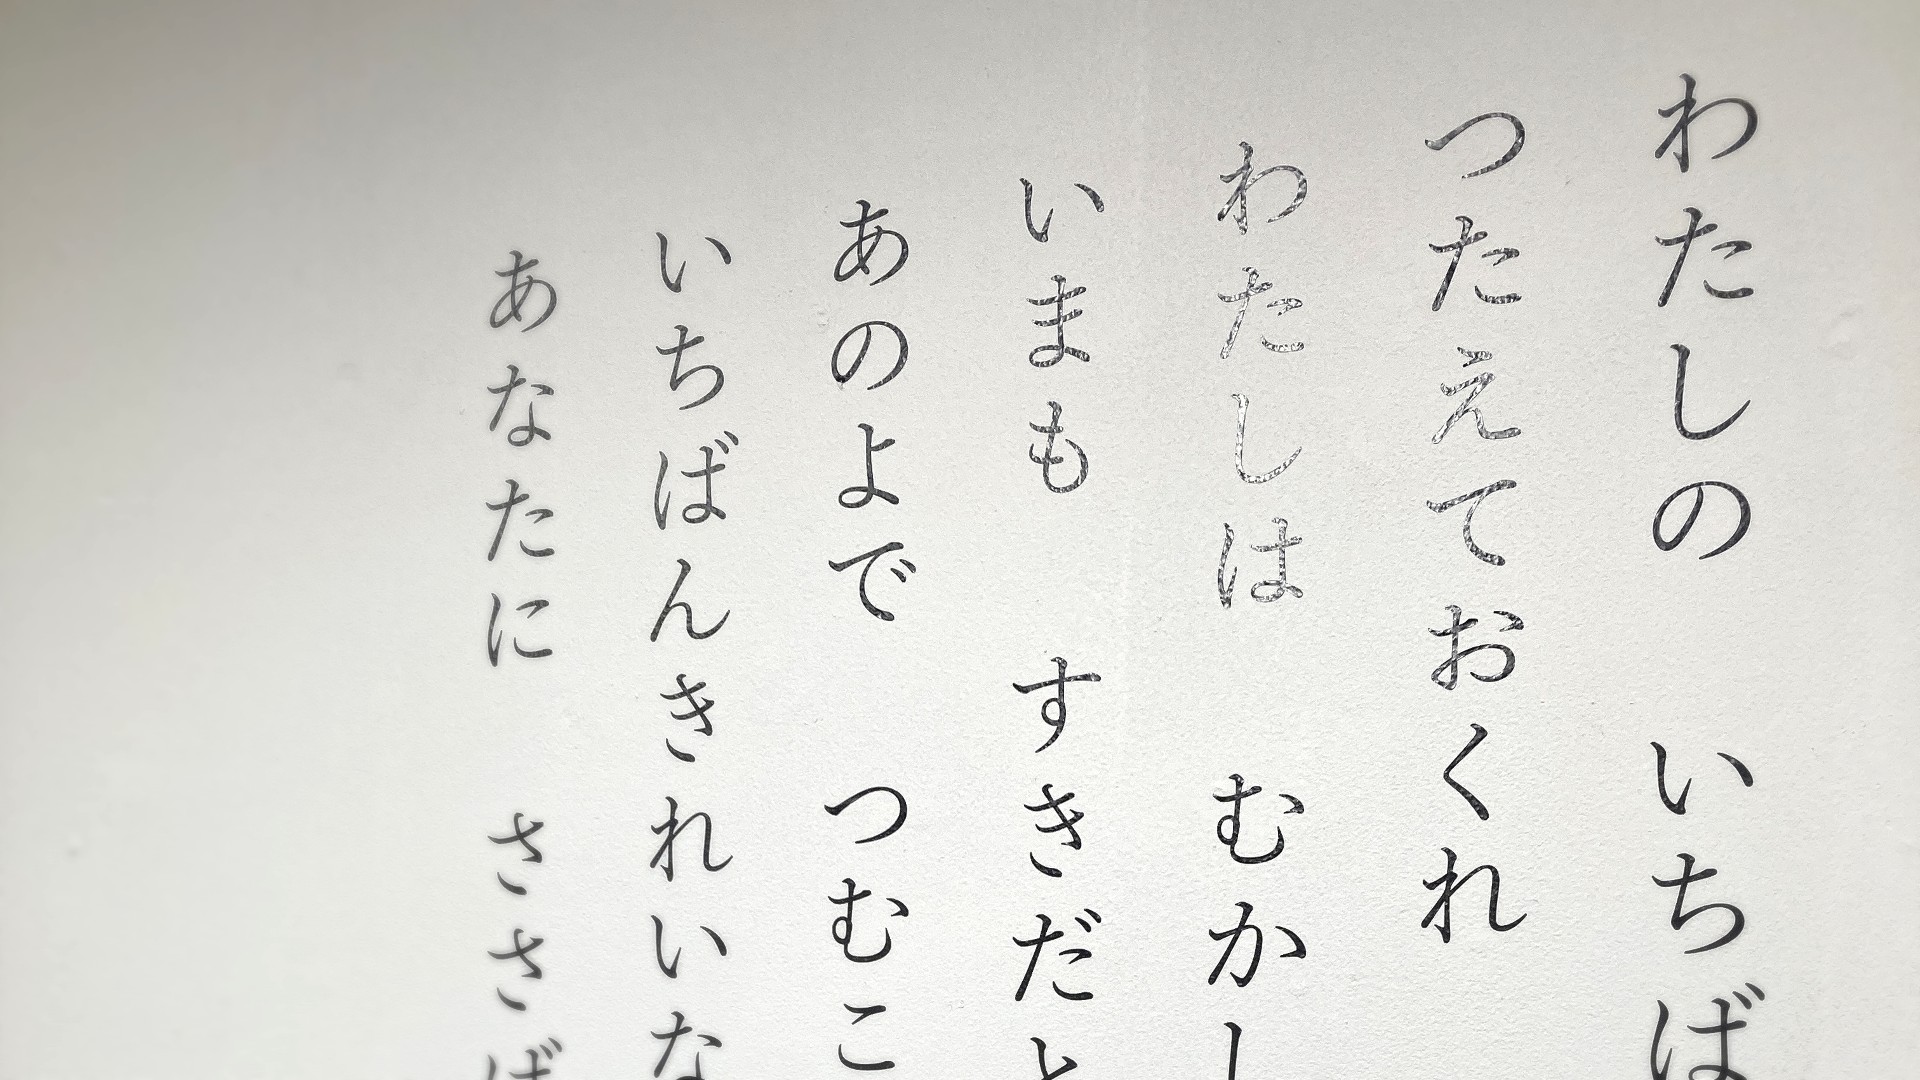 わたしの　いちば
つたえておくれ
わたしは　むかし
いまも　すきだと
あのよで　つむこ
いちばんきれいな
あなたに　ささば